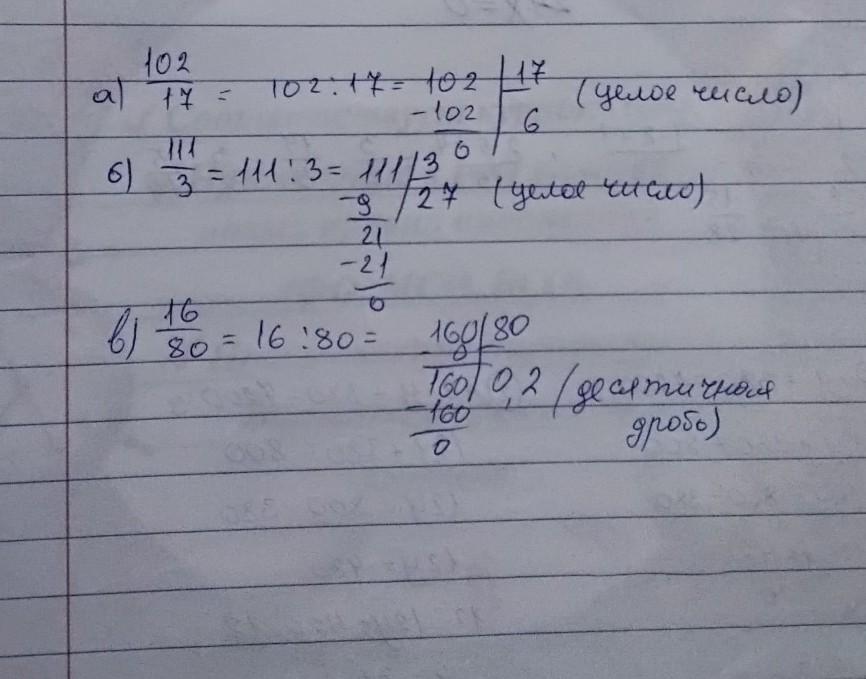 а) 102/17 = 102:17= 102 | 17 (целое число)
-102 | 6
0
б) 111/3 = 111:3= 111 | 3
-9 | 27 (целое число)
21
-21
0
в) 16/80 = 16:80= 160 | 80
-0
160 | 0,2 (десятичная
-160 дробь)
0